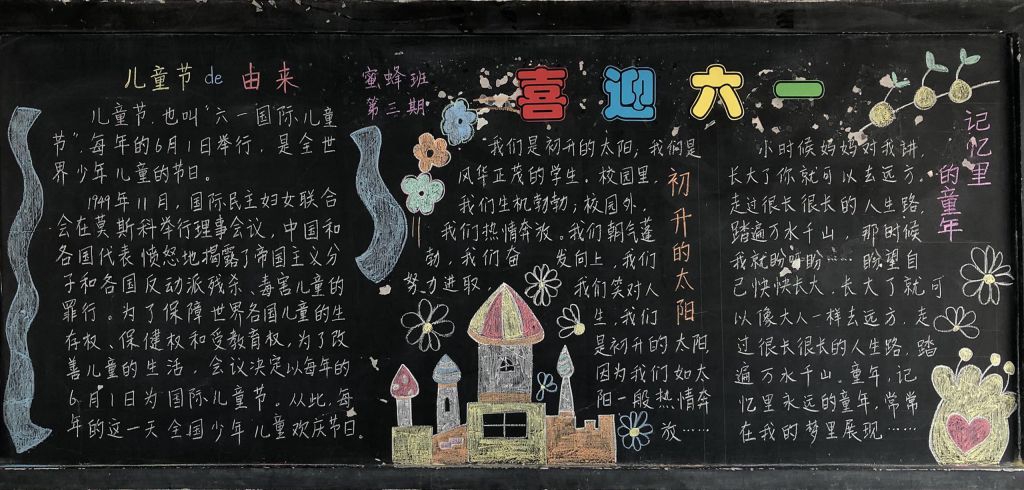 喜迎六一
蜜蜂班
第三期
儿童节de由来
儿童节,也叫“六一国际儿童
节”,每年的6月1日举行,是全世
界少年儿童的节日。
1949年11月,国际民主妇女联合
会在莫斯科举行理事会议,中国和
各国代表愤怒地揭露了帝国主义分
子和各国反动派残杀、毒害儿童的
罪行。为了保障世界各国儿童的生
存权、保健权和受教育权,为了改
善儿童的生活,会议决定以每年的
6月1日为国际儿童节。从此,每
年的这一天全国少年儿童欢庆节日。
初升的太阳
“我们是初升的太阳;我们是
风华正茂的学生。校园里,
我们生机勃勃;校园外,
我们热情奔放。我们朝气蓬
勃,我们奋发向上,我们
努力进取,我们笑对人
生,我们
是初升的太阳,
因为我们如太
阳一般热情奔
放……
记忆里
的童年
小时候妈妈对我讲,
长大了你就可以去远方。
走过很长很长的人生路,
踏遍万水千山,那时候
我就盼呀盼……盼望自
己快快长大,长大了就可
以像大人一样去远方,走
过很长很长的人生路,踏
遍万水千山。童年,记
忆里永远的童年,常常
在我的梦里展现……